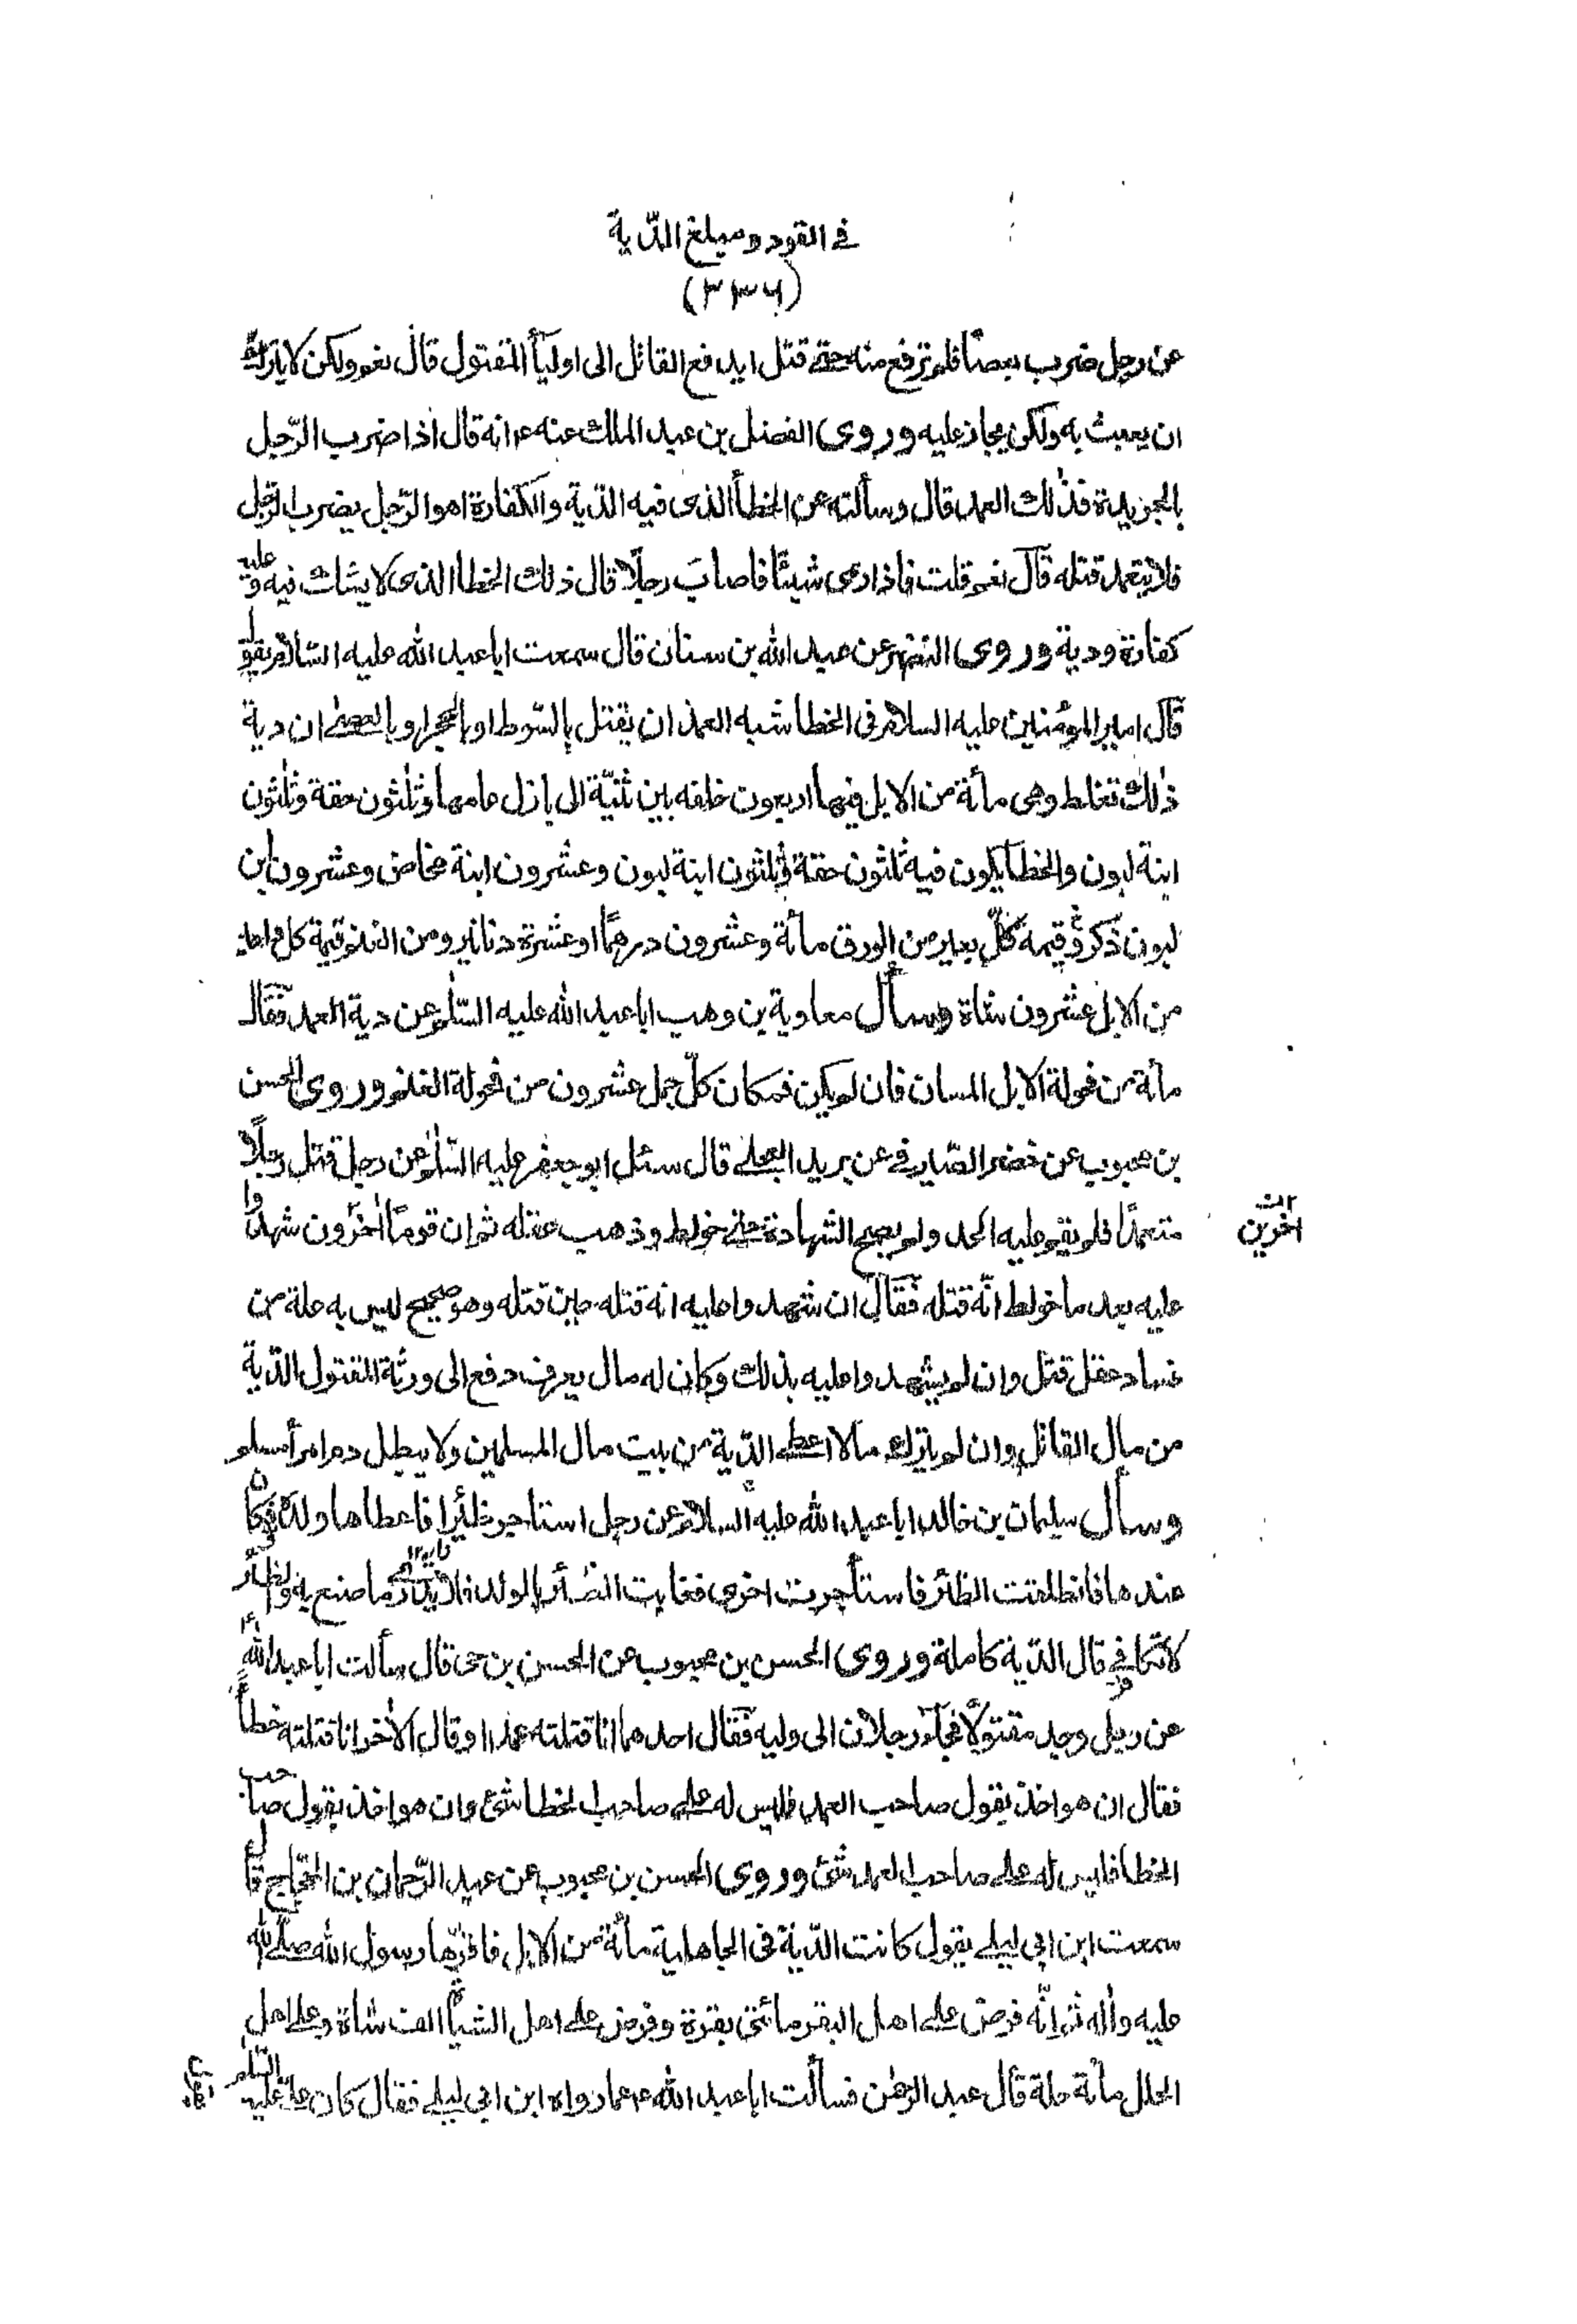 في القود و مبلغ الدّية
(٣٣٦)
عن رجل ضرب بعصًا فلم ترفع منه حتى قتل ايدفع القاتل الى اوليآأ المقتول قال نعم ولكن لا يترك
ان يعبث به ولكن يجاز عليه وروى الفضل بن عبد الملك عنه ع انه قال اذا ضرب الرّجل
بالحديدة فذٰلك العمد قال وسألته عن الخطأ الذى فيه الدّية والكفارة اهو الرّجل يضرب الرّجل
فلا يتعمد قتله قال نعم قلت فاذا رمى شيئًا فاصاب رجلًا قال ذلك الخطأ الذى لا يشك فيه وعليه
كفارة ودية وروى النضر عن عبد الله بن سنان قال سمعت ابا عبد الله عليه السّلام يقول
قال امير المؤمنين عليه السلام فى الخطا شبه العمد ان يقتل بالسّوط او بالحجر او بالعصى ان دية
ذٰلك تغلظ وهى مأئة من الابل فيها اربعون خلفه بين ثنيّة الى بازل عامها وثلٰثون حقة وثلٰثون
ابنة لبون والخطأ يكون فيه ثلٰثون حقة وثلٰثون ابنة لبون وعشرون ابنة مخاض وعشرون ابن
لبون ذكر وقيمة كلّ بعير من الورق مأئة وعشرون درهمًا او عشرة دنانير ومن الغنم قيمة كل
من الابل عشرون شاة وسأل معاوية بن وهب ابا عبد الله عليه السّلٰم عن دية العمد فقال
مأئة من فحولة الابل المسان فان لم يكن فمكان كلّ جمل عشرون من فحولة الغنم وروى الحسن
بن محبوب عن خضر الصّيرفى عن بريد العجلى قال سئل ابو جعفر عليه السّلٰم عن رجل قتل رجلًا
متعمدًا فلم يقم عليه الحد ولم يصح الشهادة حتى خولط وذهب عقله ثم ان قومًا اٰخرون شهدوا
اخرين
عليه بعد ما خولط انّه قتله فقال ان شهدوا عليه انه قتله حين قتله وهو صحيح ليس به علة من
فساد عقل قتل وان لم يشهدوا عليه بذلك وكان له مال يعرف دفع الى ورثة المقتول الدّية
من مال القاتل وان لم يترك مالا اعطى الدّية من بيت مال المسلمين ولا يبطل دم امرأ مسلم
وسأل سليمان بن خالد ابا عبد الله عليه السلام عن رجل استاجر ظئرا فاعطاها ولده فكان
عندها فانطلقت الظائر فاستأجرت اخرى فغابت الظئر بالولد فلا يدرى ما صنع به والظئر
لا تكافى قال الدّية كاملة وروى الحسن بن محبوب عن الحسين بن حى قال سألت ابا عبد الله ع
عن رجل وجد مقتولًا فجآء رجلان الى وليه فقال احدهما انا قتلته عمدا وقال الاٰخر انا قتلته خطأ
فقال ان هو اخذ بقول صاحب العمد فليس له على صاحب الخطا شئ وان هو اخذ بقول صاحب
الخطا فليس له على صاحب العمد شئ وروى الحسن بن محبوب عن عبد الرّحمان بن الحجّاج قال
سمعت ابن ابى ليلى يقول كانت الدّية فى الجاهلية مأئة من الابل فاقرّها رسول الله صلى الله
عليه واٰله ثم انّه فرض على اهل البقر مائتى بقرة وفرض على اهل الشياة الف شاة وعلى اهل
الحلل مائة حلة قال عبد الرحمٰن فسألت ابا عبد الله ع عما رواه ابن ابى ليلى فقال كان على عليه السّلٰم